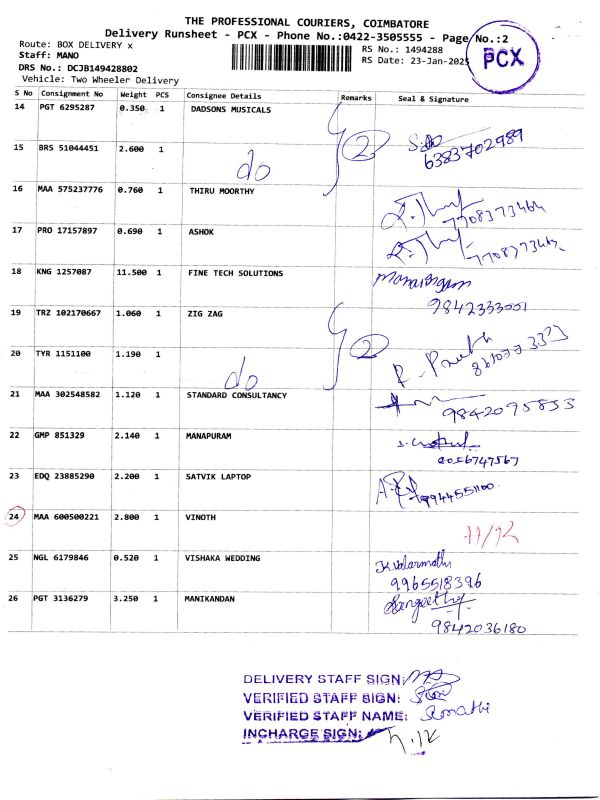 THE PROFESSIONAL COURIERS, COIMBATORE
Delivery Runsheet - PCX - Phone No.:0422-3505555 - Page No.:2
Route: BOX DELIVERY x
RS No.: 1494288
Staff: MANO
RS Date: 23-Jan-2025
PCX
DRS No.: DCJB149428802
Vehicle: Two Wheeler Delivery
S No Consignment No Weight PCS Consignee Details Remarks Seal & Signature
14 PGT 6295287 0.350 1 DADSONS MUSICALS
2
6383702989
15 BRS 51044451 2.600 1
do
16 MAA 575237776 0.760 1 THIRU MOORTHY
7708373464
17 PRO 17157897 0.690 1 ASHOK
18 KNG 1257087 11.500 1 FINE TECH SOLUTIONS
9842333001
19 TRZ 102170667 1.060 1 ZIG ZAG
2
20 TYR 1151100 1.190 1
do
21 MAA 302548582 1.120 1 STANDARD CONSULTANCY
9842075853
22 GMP 851329 2.140 1 MANAPURAM
23 EDQ 23885290 2.200 1 SATVIK LAPTOP
9944551100
24 MAA 600500221 2.800 1 VINOTH
25 NGL 6179846 0.520 1 VISHAKA WEDDING
K.Valarmathi
9965518396
26 PGT 3136279 3.250 1 MANIKANDAN
Sangeetha
9842036180
DELIVERY STAFF SIGN:
VERIFIED STAFF SIGN:
VERIFIED STAFF NAME:
INCHARGE SIGN: